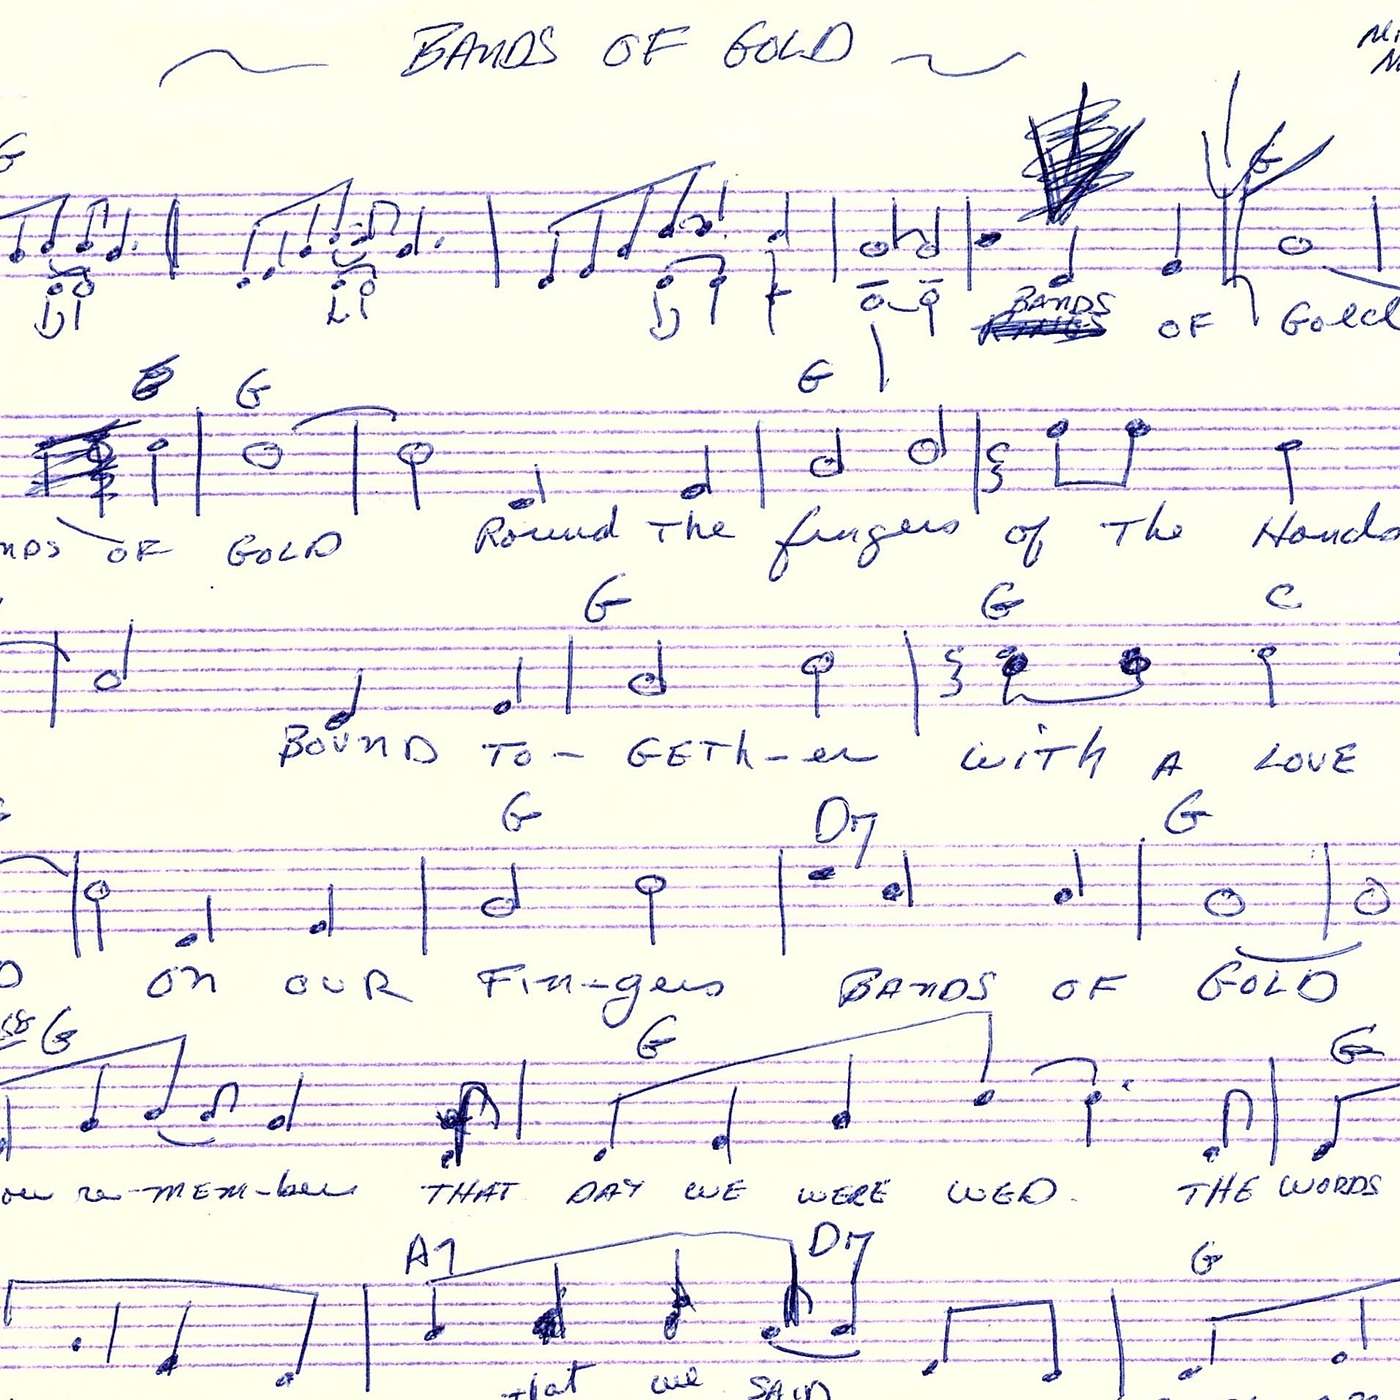 BANDS OF GOLD
G
G
BANDS
OF Gold
G
G
OF GOLD Round The fingers of The Hands
G G C
BOUND TO- GETh-er WITh A LOVE
G D7 G
ON OUR Fin-gers BANDS OF GOLD
G G G
re-MEM-ber THAT DAY WE WERE WED. THE WORDS
A7 D7 G
that we SAID